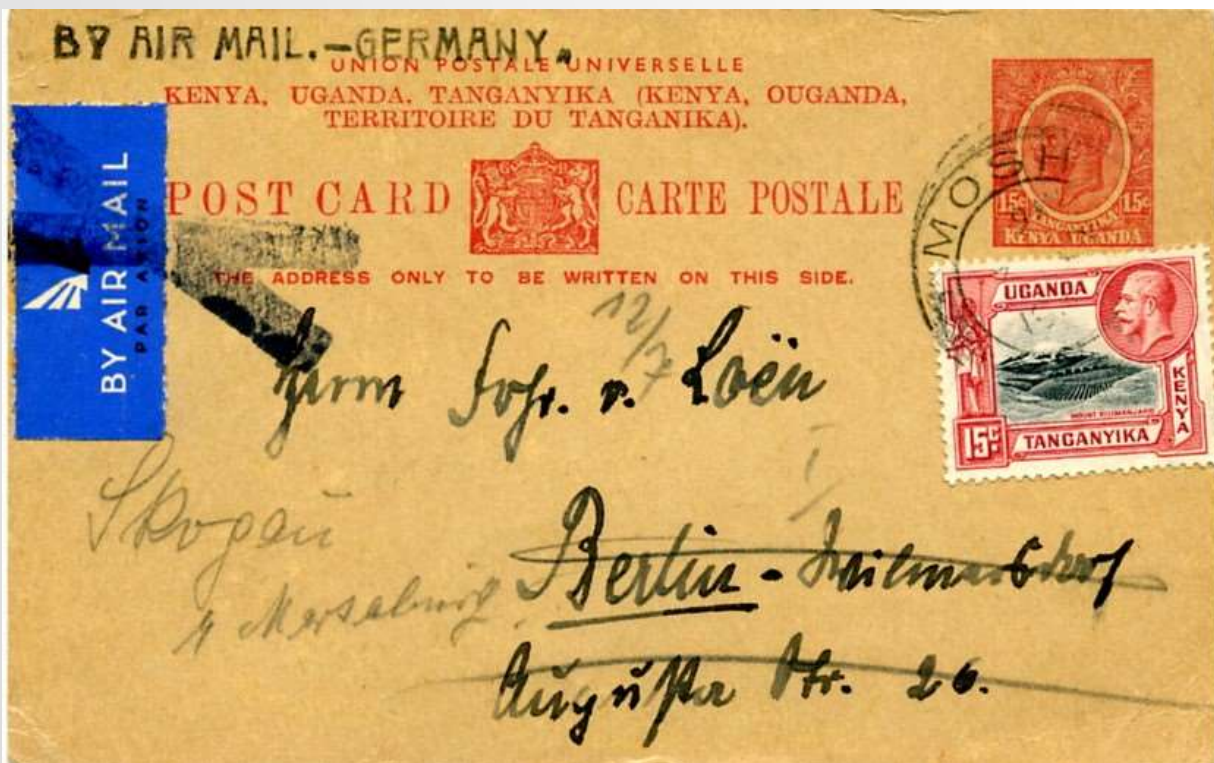 BY AIR MAIL.-GERMANY.
UNION POSTALE UNIVERSELLE
KENYA, UGANDA, TANGANYIKA (KENYA, OUGANDA,
TERRITOIRE DU TANGANIKA).
POST CARD CARTE POSTALE
THE ADDRESS ONLY TO BE WRITTEN ON THIS SIDE.
BY AIR MAIL
PAR AVION
15c TANGANYIKA 15c
KENYA UGANDA
MOSHI
UGANDA
KENYA
MOUNT KILIMANJARO
15c
TANGANYIKA
12/7
Herrn Frhr. v. Loën
Berlin - Wilmersdorf
Augusta Str. 26.